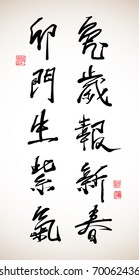 兔歲報新春
卯門生紫氣
70062436